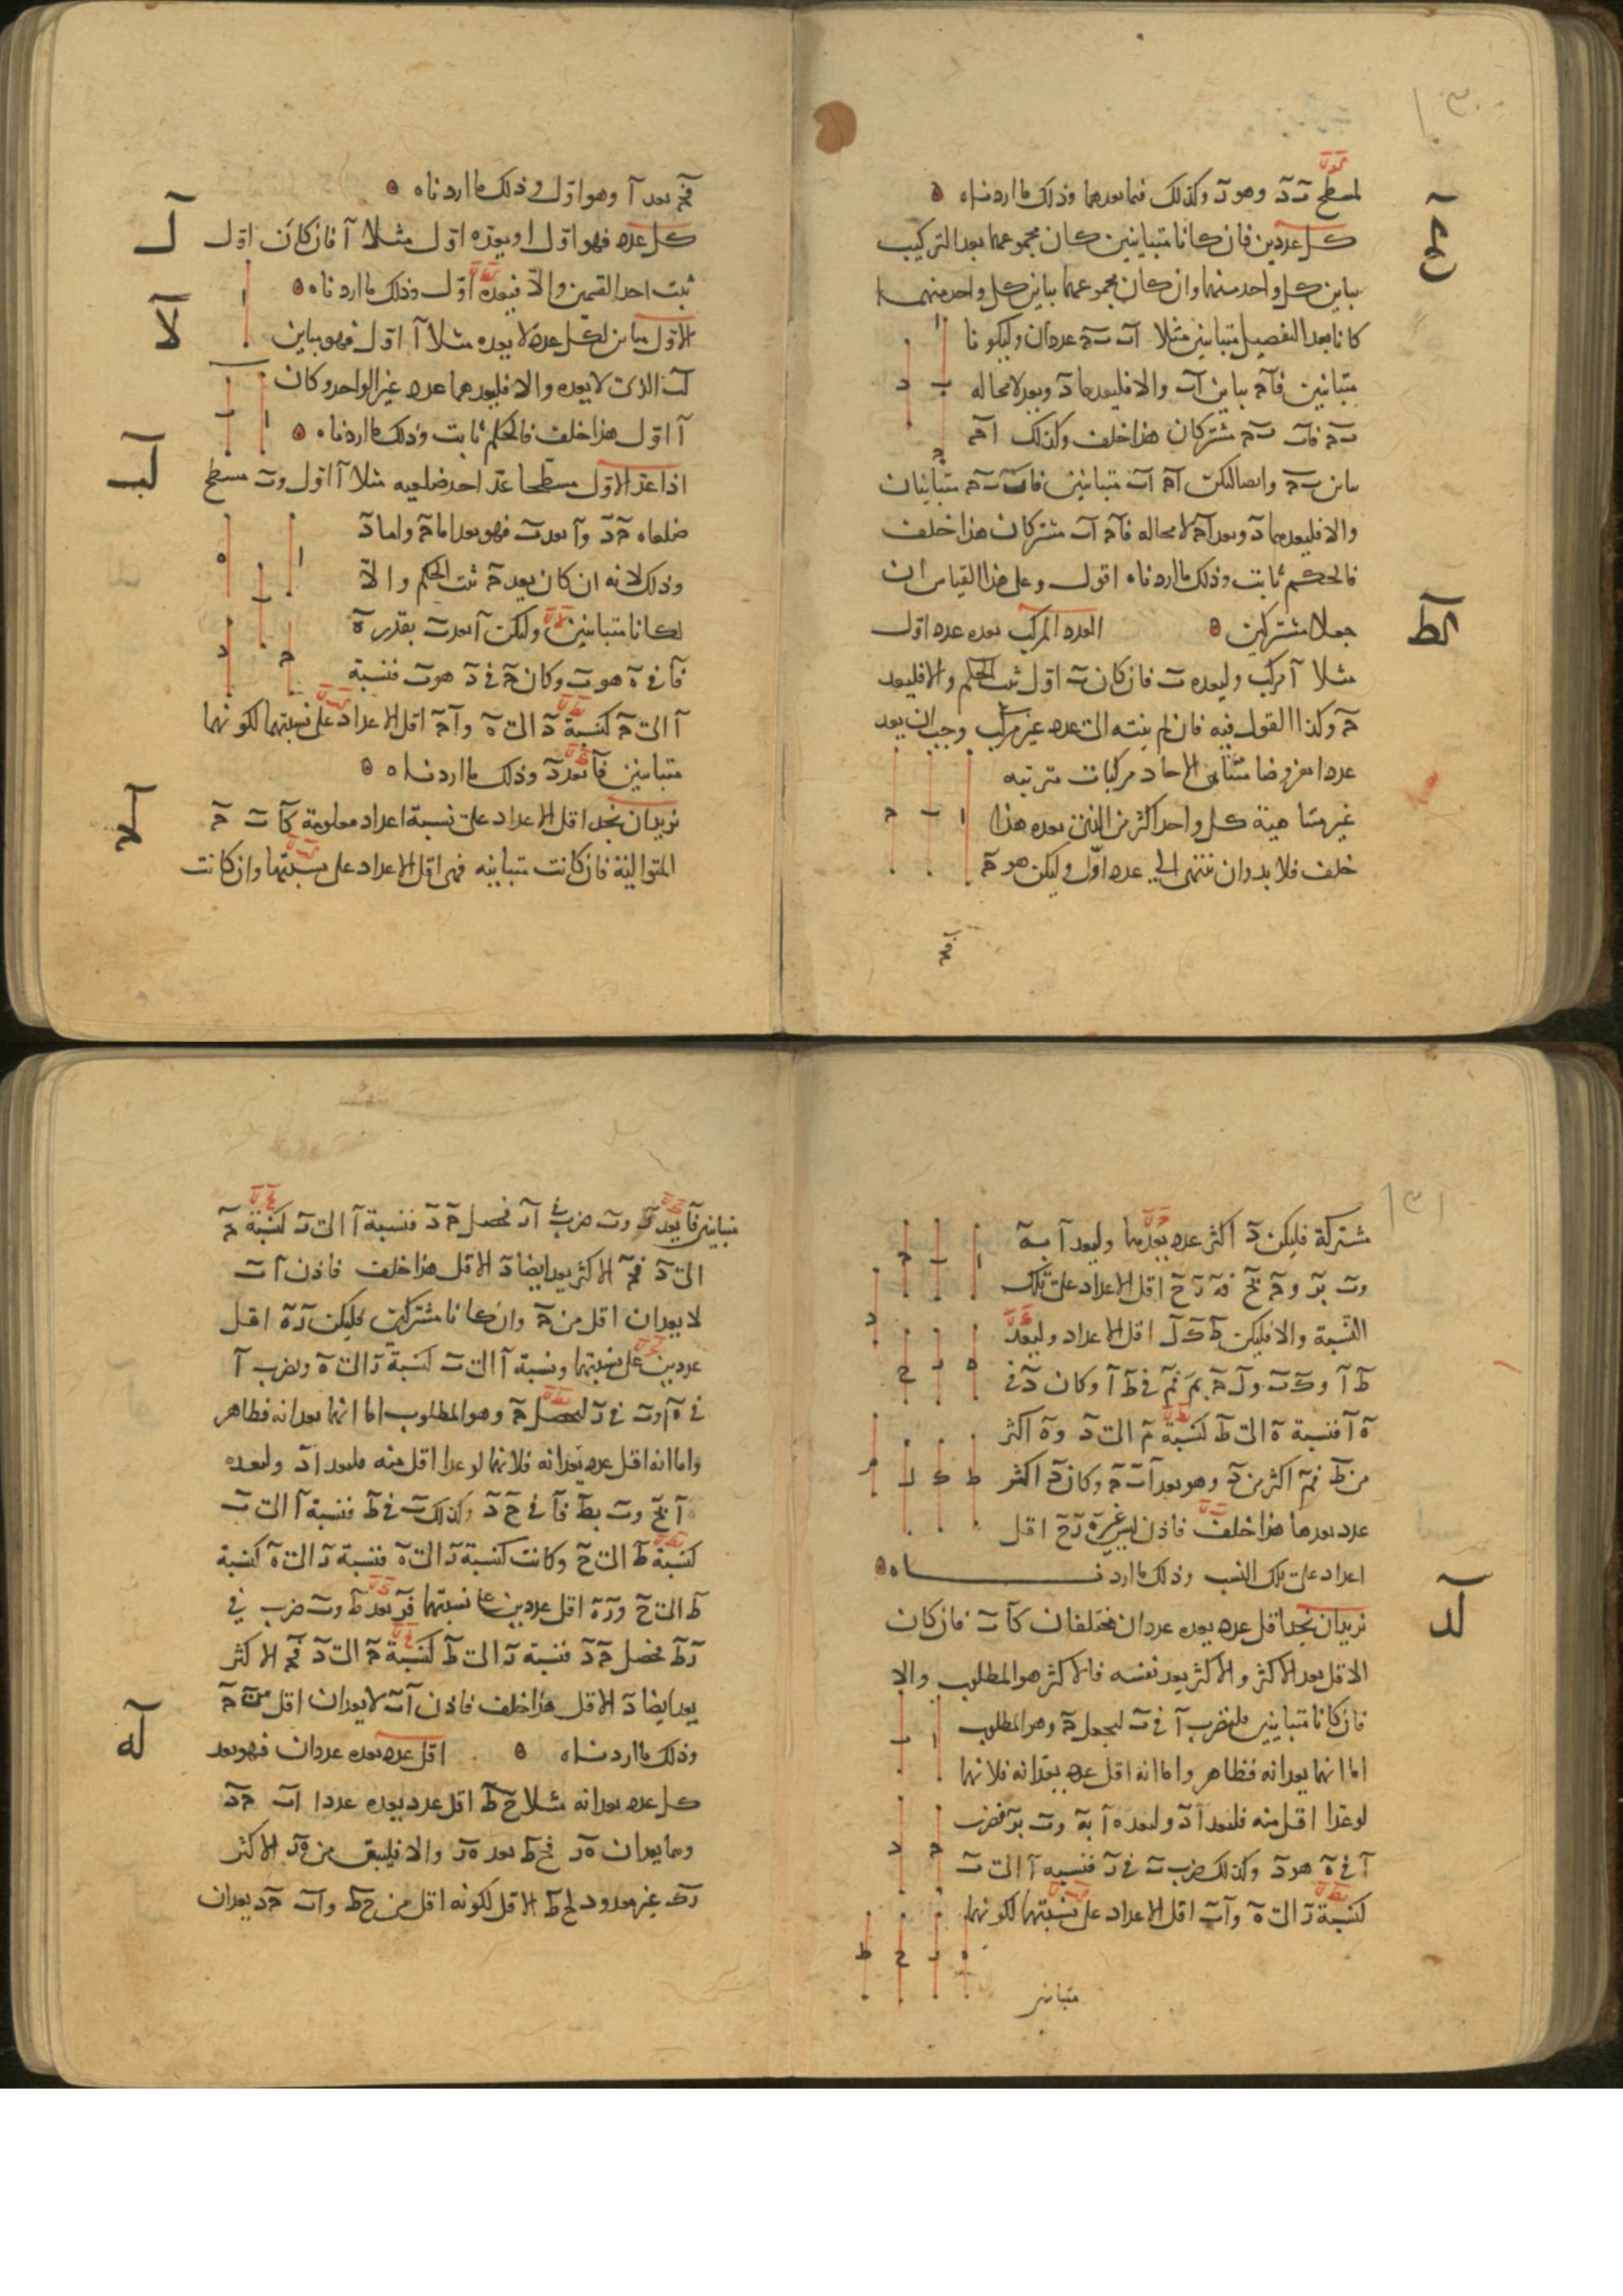 ١٣٠
لمسطح ب د وهو د وكذلك فيما بعدهما وذلك ما اردناه
كح
كل عددين فان كانا متباينين كان مجموعهما بعد التركيب
يباين كل واحد منهما وان كان مجموعهما يباين كل واحد منهما
كانا بعد التفصيل متباينين مثلا ا ب ب ح عددان وليكونا
متباينين فا ح يباين ا ب والا فليعدهما د ويعد لا محاله
ب ح فا ب ب ح مشتركان هذا خلف وكذلك ا ح
يباين ب ح وايضا ليكن ا ح ا ب متباينين فا ب ب ح متباينان
والا فليعدهما د ويعد ا ح لا محاله فا ح ا ب مشتركان هذا خلف
فالحكم ثابت وذلك ما اردناه اقول وعلى هذا القياس ان
جعلا مشتركين العدد المركب يعده عدد اول
كط
مثلا ا مركب وليعده ب فان كان ب اول ثبت الحكم والا فليعد
ح وكذا القول فيه فان لم ينته الى عدد غير مركب وجب ان يعد
عددا مفروضا متناهى الاحاد مركبات مترتبه
غير متناهية كل واحد اكثر من الذى يعده هذا
خلف فلا بد وان ينتهى الى عدد اول وليكن هو ح
فح
فح يعد ا وهو اول وذلك ما اردناه
ل
كل عدد فهو اول او يعده اول مثلا ا فان كان اول
ثبت احد القسمين والا فيعده اول وذلك ما اردناه
لا
الاول يباين لكل عدد لا يعده مثلا ا اول فهو يباين
ل ب الذى لا يعده والا فليعدهما عدد غير الواحد وكان
ا اول هذا خلف فالحكم ثابت وذلك ما اردناه
لب
اذا عد الاول مسطحا عد احد ضلعيه مثلا ا اول و ب مسطح
ضلعاه ح د و ا يعد ب فهو يعد اما ح واما د
وذلك لانه ان كان يعد ح ثبت الحكم والا
لكانا متباينين وليكن ا يعد ب بقدر ه
فا فى ه هو ب وكان ح فى د هو ب فنسبة
ا الى ح كنسبة د الى ه و ا ح اقل الاعداد على نسبتهما لكونهما
متباينين فا يعد د وذلك ما اردناه
لح
نريد ان نجد اقل الاعداد على نسبة اعداد معلومة كا ب ح
المتوالية فان كانت متباينه فهى اقل الاعداد على نسبتها وان كانت
١٣١
مشتركة فليكن د اكثر عدد يعدها وليعد ا ب ه
و ب ب ز و ح ب ح فه ز ح اقل الاعداد على تلك
النسبة والا فليكن ط ك ل اقل الاعداد وليعد
ط ا و ك ب و ل ح ب م فم فى ط ا وكان د فى
ه ا فنسبة ه الى ط كنسبة م الى د و ه اكثر
من ط فم اكثر من د وهو يعد ا ب ح وكان د اكثر
عدد يعدها هذا خلف فاذن ليس غير ه ز ح اقل
اعداد على تلك النسب وذلك ما اردناه
لد
نريد ان نجد اقل عدد يعده عددان مختلفان كا ب فان كان
الاقل يعد الاكثر والاكثر يعد نفسه فالاكثر هو المطلوب والا
فان كانا متباينين فليضرب ا فى ب ليحصل ح وهو المطلوب
اما انهما يعدانه فظاهر واما انه اقل عدد يعدانه فلانهما
لو عدا اقل منه فليعدا د وليعده ا ب ه و ب ب ز فضرب
ا فى ه هو د وكذلك ضرب ب فى ز فنسبه ا الى ب
كنسبة ز الى ه و ا ب اقل الاعداد على نسبتهما لكونهما
متباينين
متباينين فا يعد ز و ب ضرب فى ا ز فحصل ح د فنسبة ا الى ز كنسبة ح
الى د فح الاكثر يعد ايضا د الاقل هذا خلف فاذن ا ب
لا يعدان اقل من ح وان كانا مشتركين فليكن ز ه اقل
عددين على نسبتهما ونسبة ا الى ب كنسبة ز الى ه ونضرب ا
فى ه او ب فى ز ليحصل ح وهو المطلوب اما انهما يعدانه فظاهر
واما انه اقل عدد يعدانه فلانهما لو عدا اقل منه فليعدا د وليعده
ا ب ح و ب ب ط فا فى ح د وكذلك ب فى ط فنسبة ا الى ب
كنسبة ط الى ح وكانت كنسبة ز الى ه فنسبة ز الى ه كنسبة
ط الى ح و ز ه اقل عددين على نسبتهما فز يعد ط و ب ضرب فى
ز ط فحصل ح د فنسبة ز الى ط كنسبة ح الى د فح الاكثر
يعد ايضا د الاقل هذا خلف فاذن ا ب لا يعدان اقل من ح
وذلك ما اردناه اقل عدد يعده عددان فهو يعد
له
كل عدد يعدانه مثلا ح ط اقل عدد يعده عددا ا ب ح د
وهما يعدان ه ز فح ط يعد ه ز والا فليبق من ه ز الاكثر
ز ك غير معدود لح ط الاقل لكونه اقل من ح ط و ا ب ح د يعدان